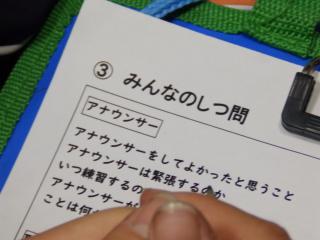 ③ みんなのしつ問
アナウンサー
アナウンサーをしてよかったと思うこと
アナウンサーは緊張するのか
いつ練習するの
アナウンサーが
ことは何